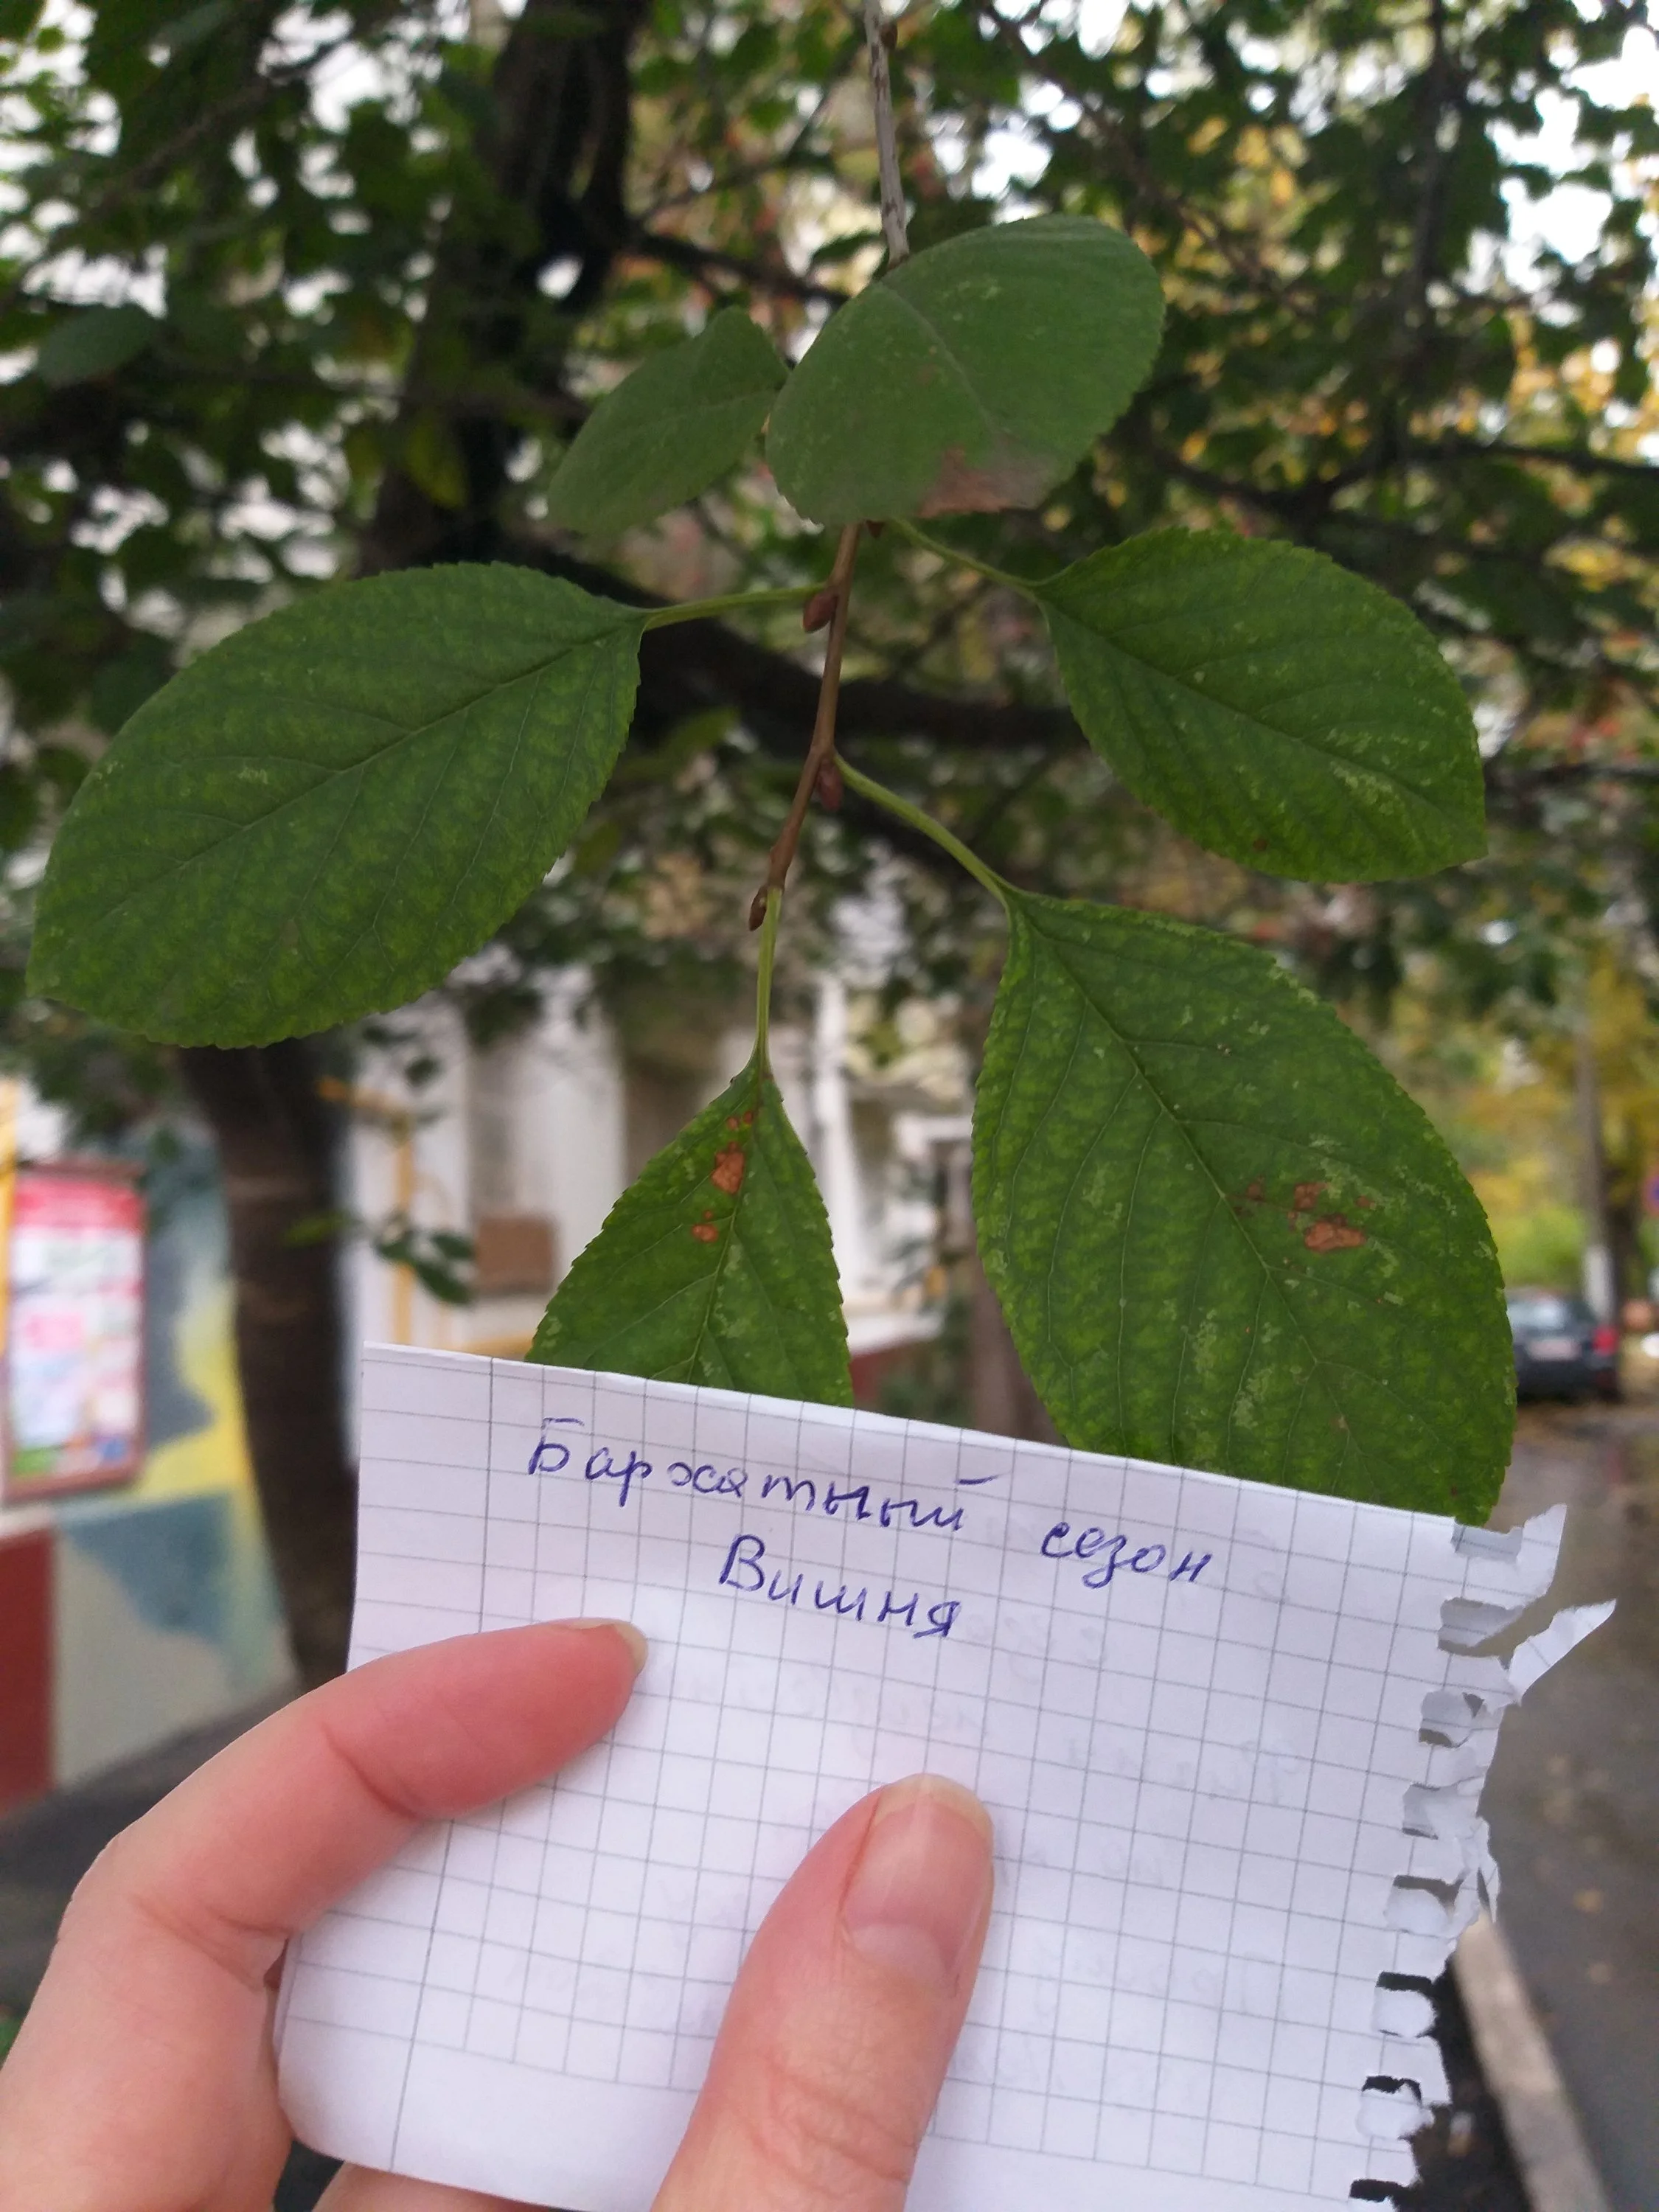 Бархатный сезон
Вишня